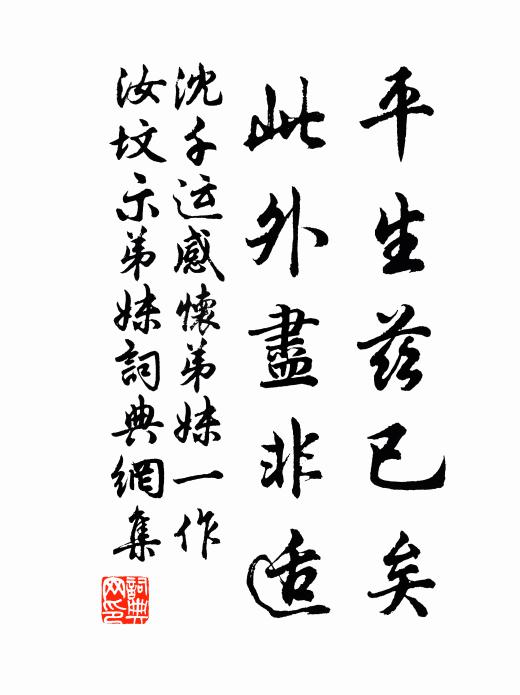 平生茲已矣
此外盡非适
沈千运感懷弟妹一作
汝墳示弟妹詞典網集
詞典網印